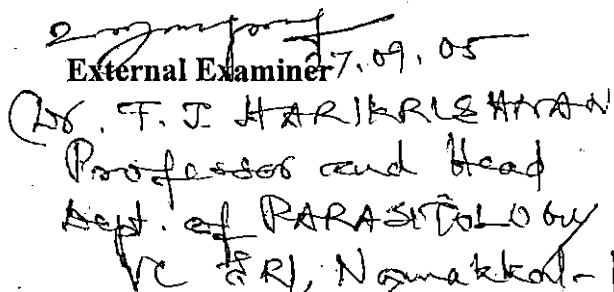 27.09.05
External Examiner
(Dr. T. J. HARIKRISHNAN
Professor and Head
Dept. of PARASITOLOGY
VC & RI, Namakkal-1